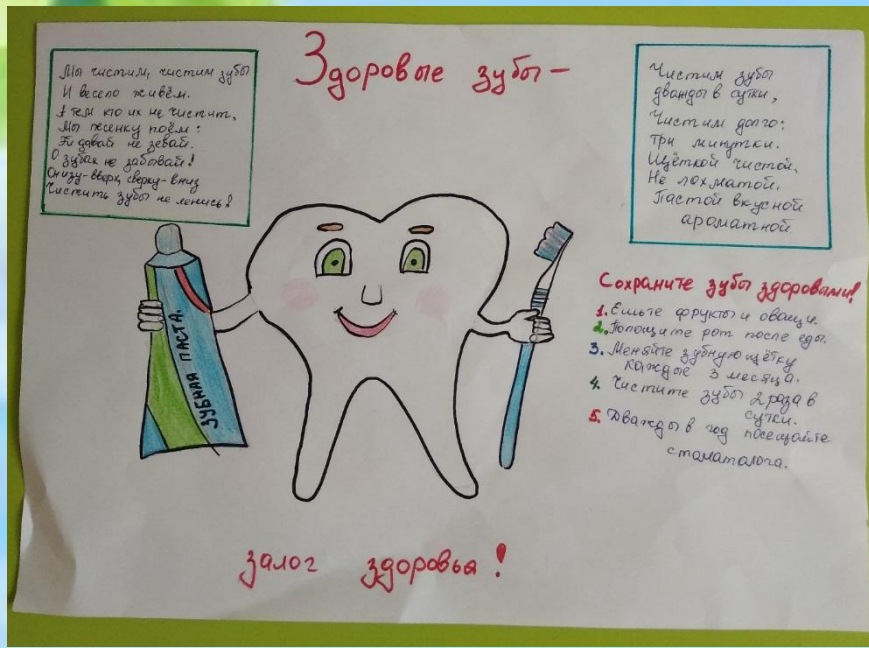 Здоровые зубы –
Мы чистим, чистим зубы
И весело живём.
А тем кто их не чистит,
Мы песенку поём:
Эй давай не зевай.
О зубах не забывай!
Снизу-вверх, сверху-вниз
Чистить зубы не ленись!
Чистим зубы
дважды в сутки,
Чистим долго:
три минутки.
Щёткой чистой,
Не лохматой,
Пастой вкусной
ароматной
ЗУБНАЯ ПАСТА.
Сохраните зубы здоровыми!
1. Ешьте фрукты и овощи.
2. Полощите рот после еды.
3. Меняйте зубную щётку
каждые 3 месяца.
4. Чистите зубы 2 раза в
сутки.
5. Дважды в год посещайте
стоматолога.
залог здоровья!